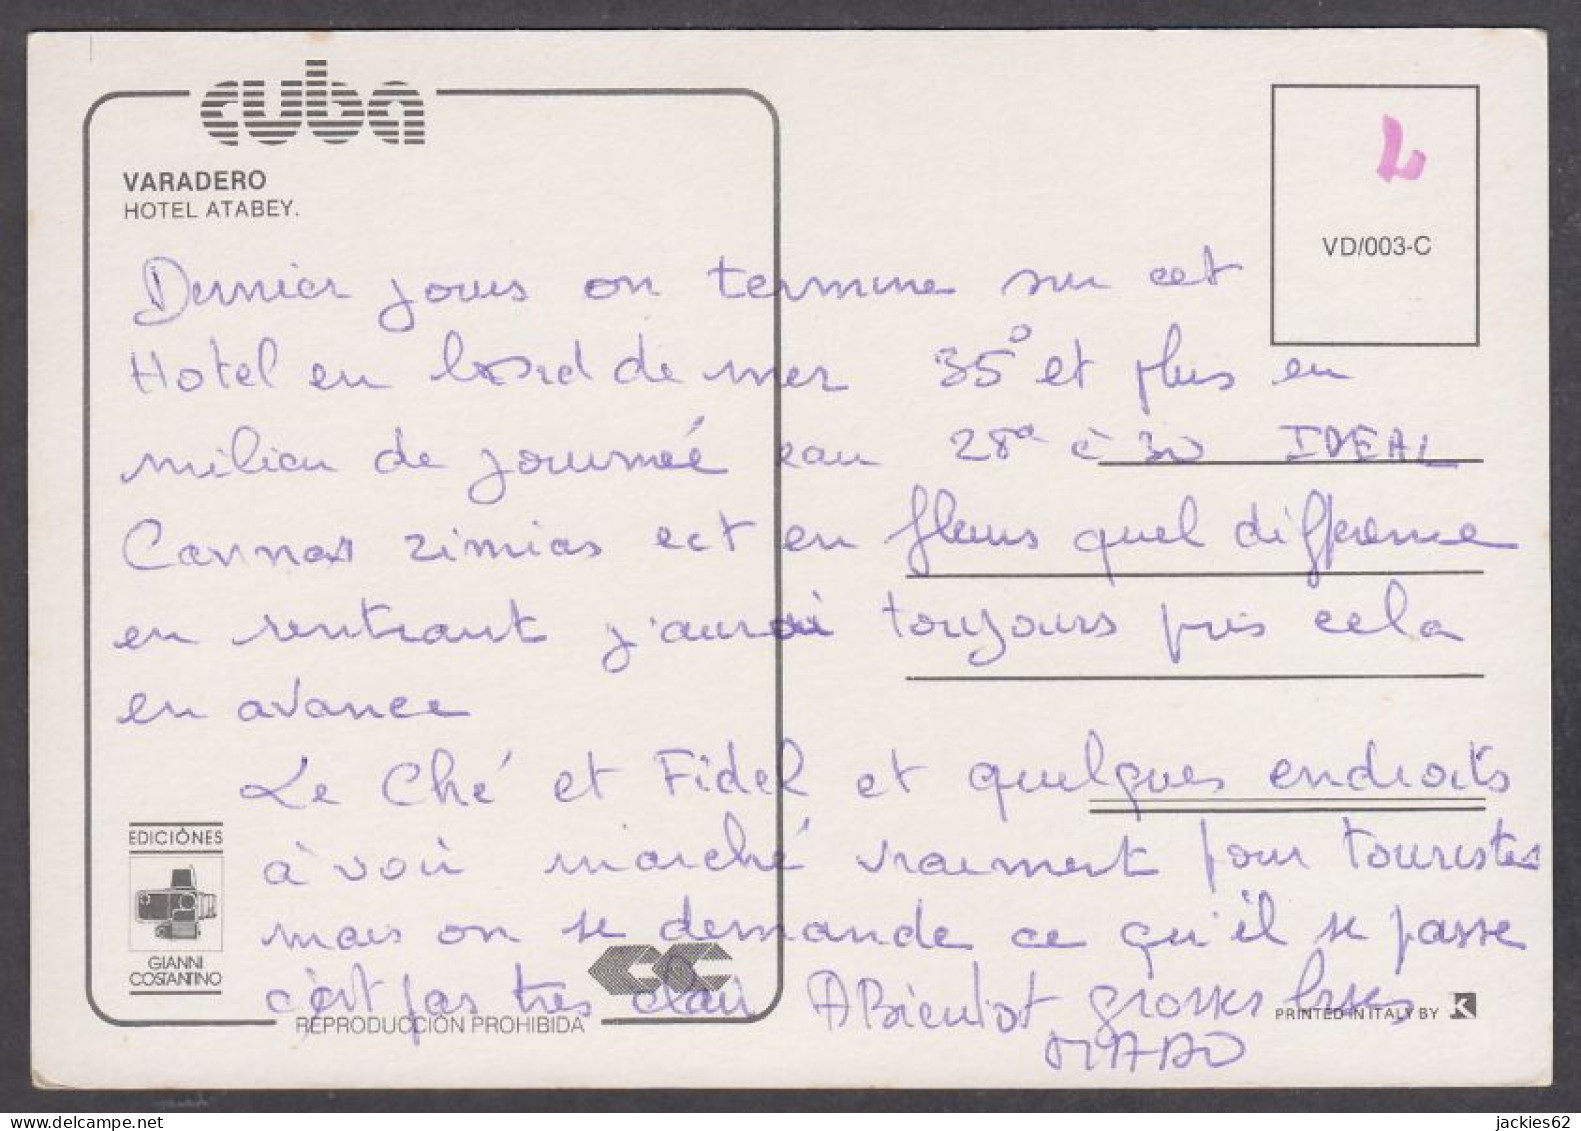 cuba
VARADERO
HOTEL ATABEY.
VD/003-C
Dernier jours on termine sur cet
Hotel en bord de mer 35° et plus en
milieu de journeé eau 28° à 30 IDEAL
Cannas zimias ect en fleurs quel difference
en rentrant j'aurai toujours pris cela
en avance
Le Ché et Fidel et quelques endroits
à voir marché vraiment pour touristes
mais on se demande ce qu'il se passe
c'est pas très clair A Bientot grosses bises
MADO
EDICIÒNES
GIANNI
COSTANTINO
REPRODUCCIÓN PROHIBIDA
PRINTED IN ITALY BY K
delcampe.net
jackies62